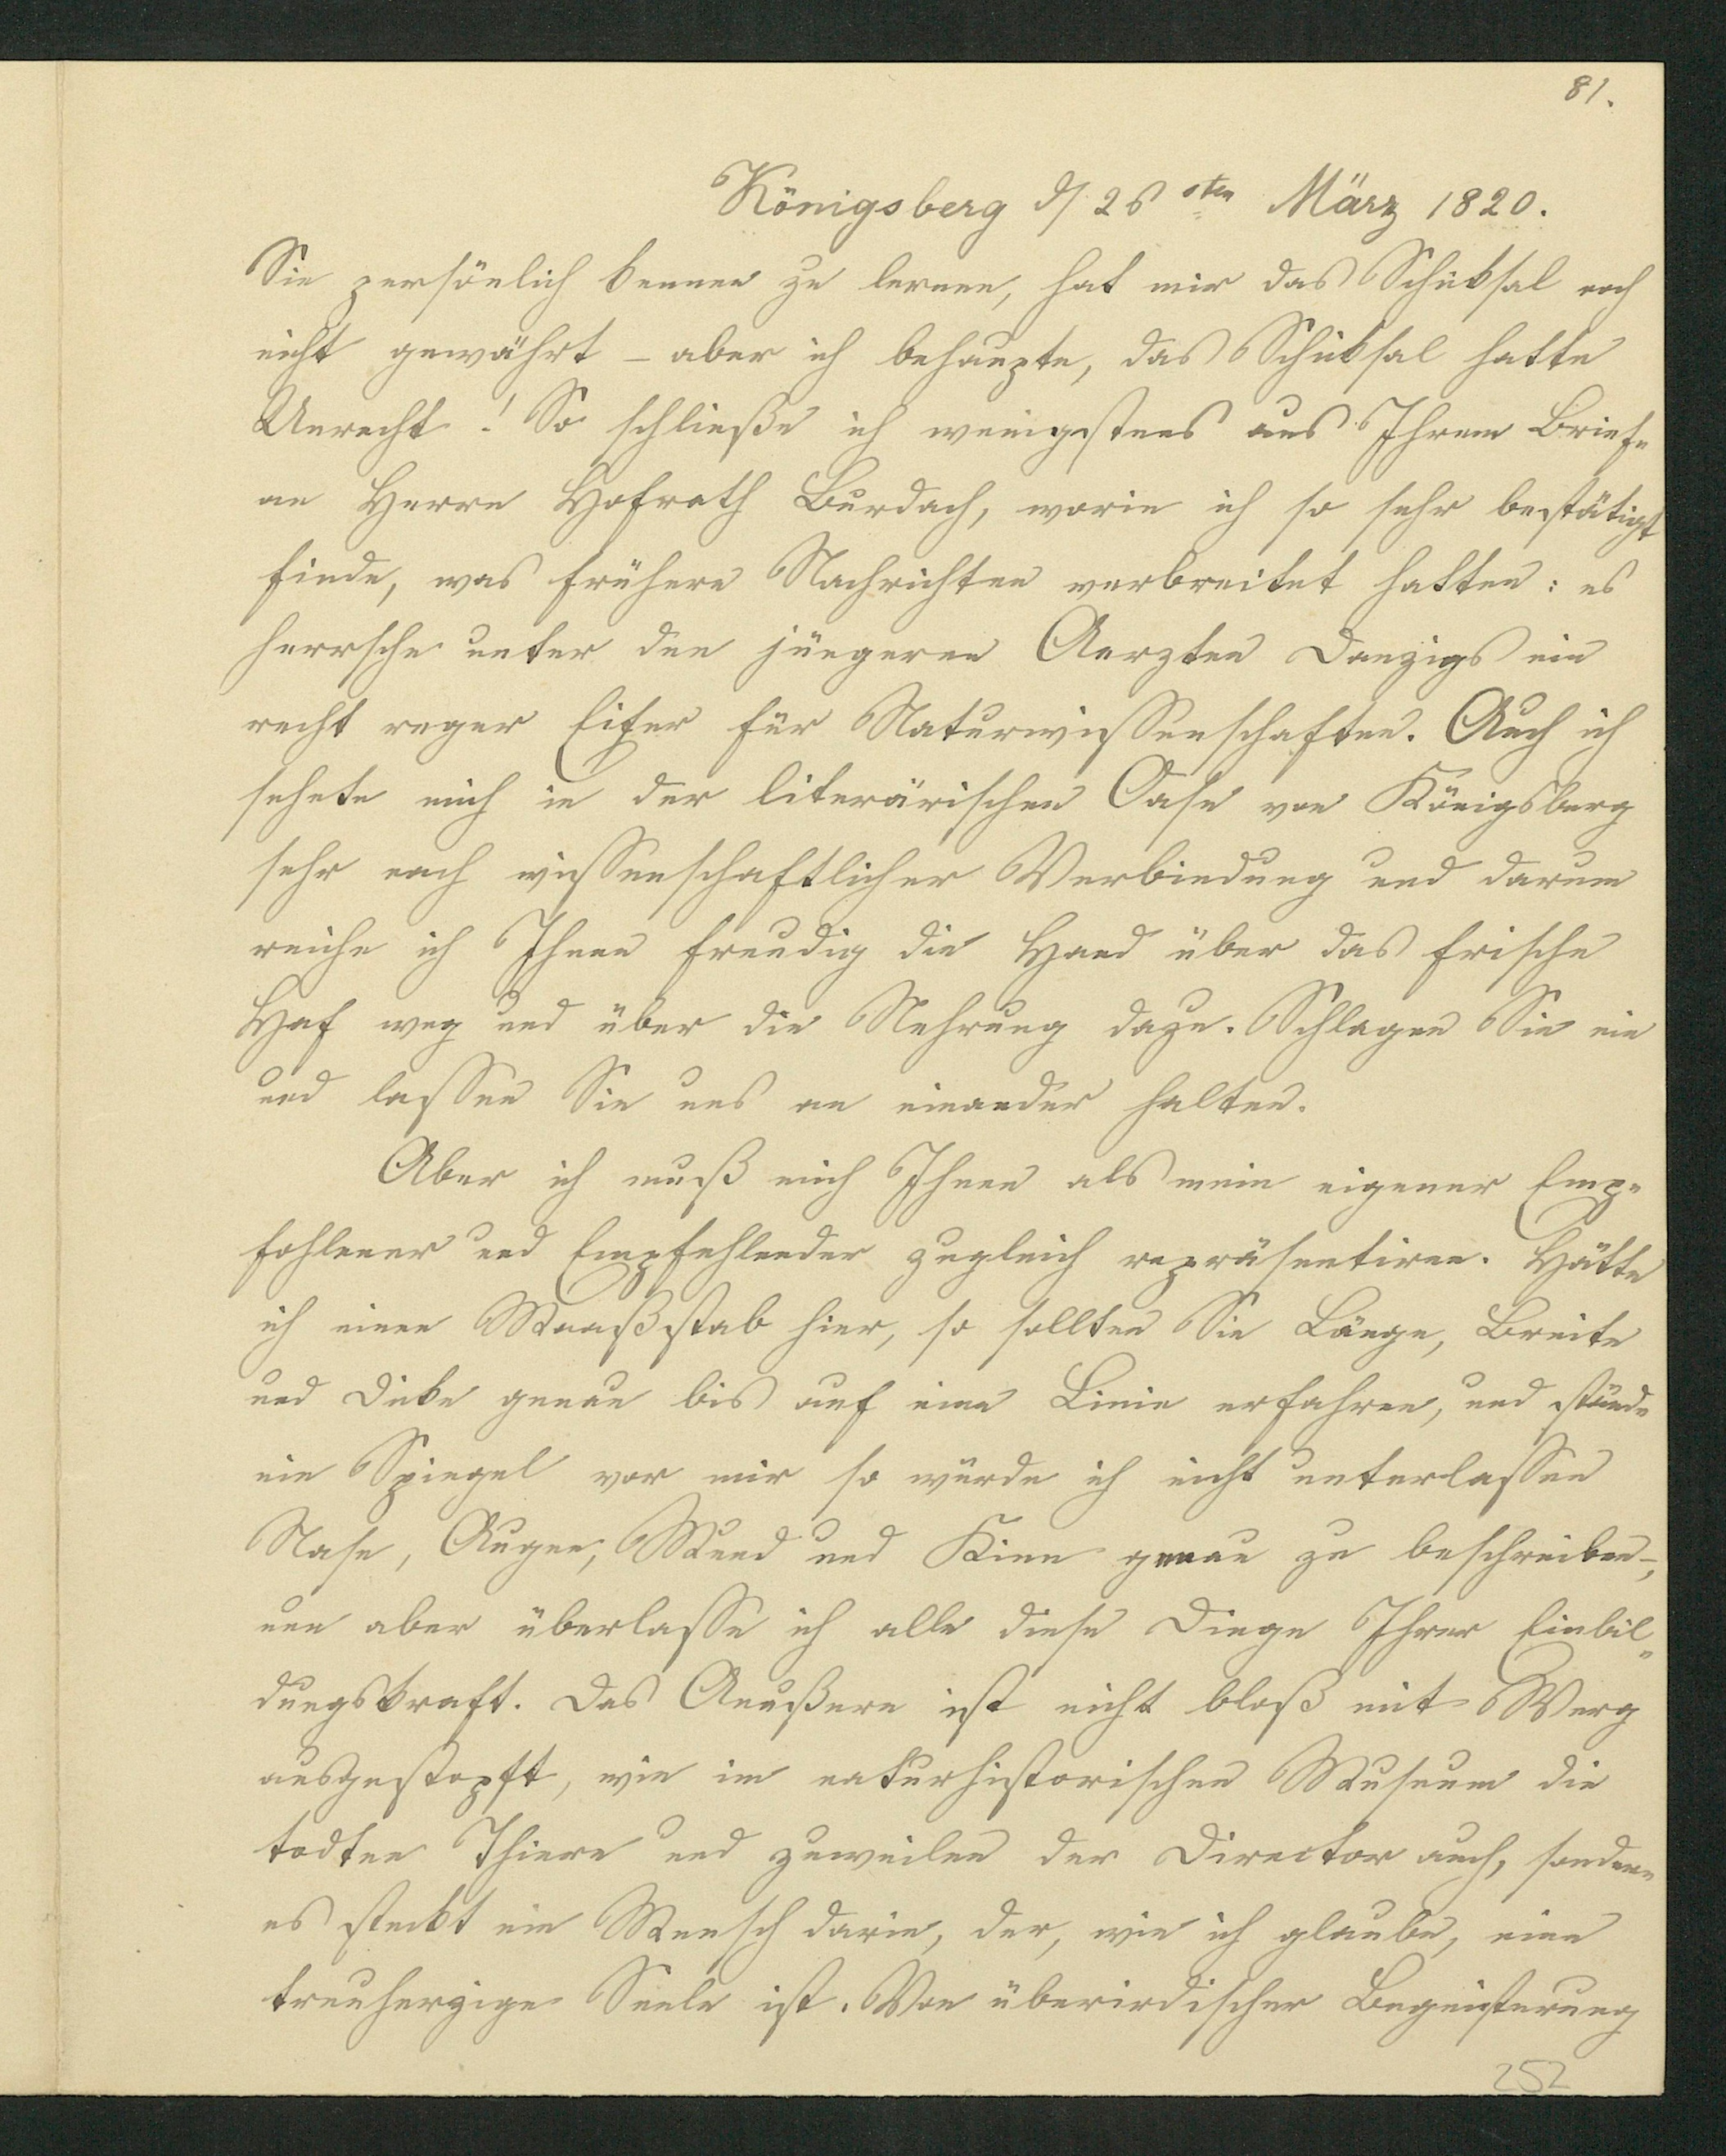 81.
Königsberg d/ 26sten März 1820.
Sie persönlich kennen zu lernen, hat mir das Schiksal noch
nicht gewährt – aber ich behaupte, das Schiksal hatte
Unrecht! So schließe ich wenigstens aus Ihrem Briefe
an Herrn Hofrath Burdach, worin ich so sehr bestätigt
finde, was frühere Nachrichten verbreitet hatten: es
herrsche unter den jüngeren Aerzten Danzigs ein
recht reger Eifer für Naturwissenschaften. Auch ich
sehnte mich in der literärischen Oase von Königsberg
sehr nach wissenschaftlicher Verbindung und darum
reiche ich Ihnen freudig die Hand über das frische
Haf weg und über die Nehrung dazu. Schlagen Sie ein
und lassen Sie uns an einander halten.
Aber ich muß mich Ihnen als mein eigener Emp-
fohlener und Empfehlender zugleich repräsentiren. Hätte
ich einen Maaßstab hier, so sollten Sie Länge, Breite
und Dicke genau bis auf eine Linie erfahren, und stünde
ein Spiegel vor mir so würde ich nicht unterlassen
Nase, Augen, Mund und Kinn genau zu beschreiben –,
nun aber überlasse ich alle diese Dinge Ihrer Einbil-
dungskraft. Das Aeußere ist nicht bloß mit Werg
ausgestopft, wie im naturhistorischen Museum die
todten Thiere und zuweilen der Director auch, sondern
es stekt ein Mensch darin, der, wie ich glaube, eine
treuherzige Seele ist. Von überirdischer Begeisterung
252